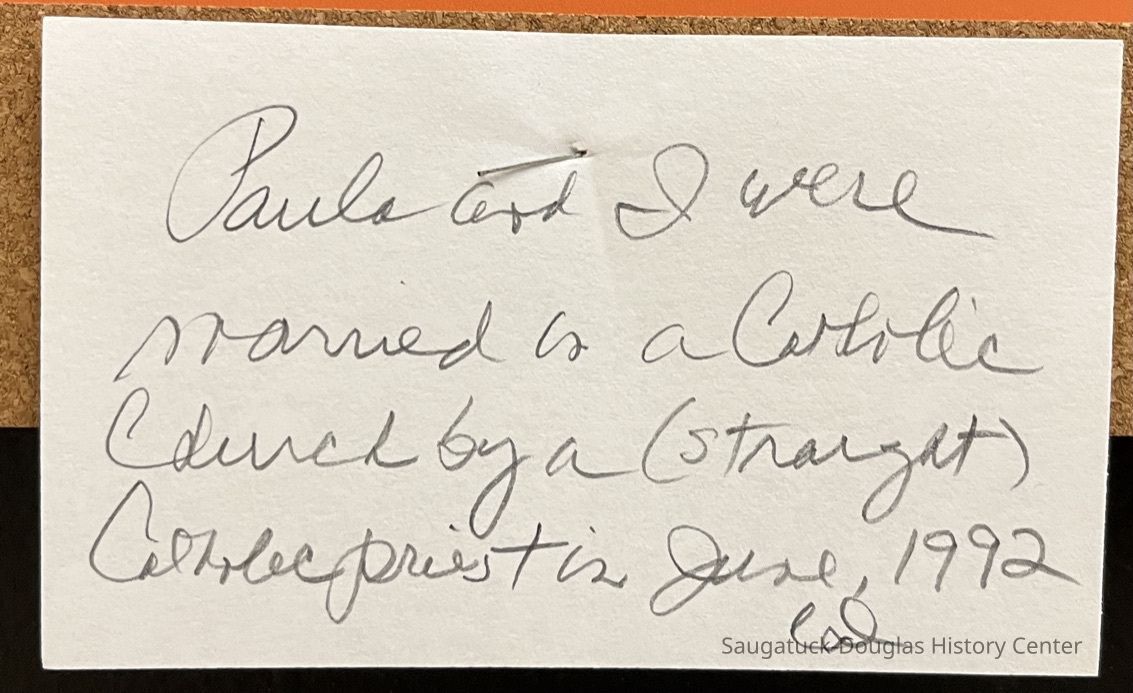 Paula and I were
married in a Catholic
Church by a (straight)
Catholic priest in June, 1992
Saugatuck-Douglas History Center